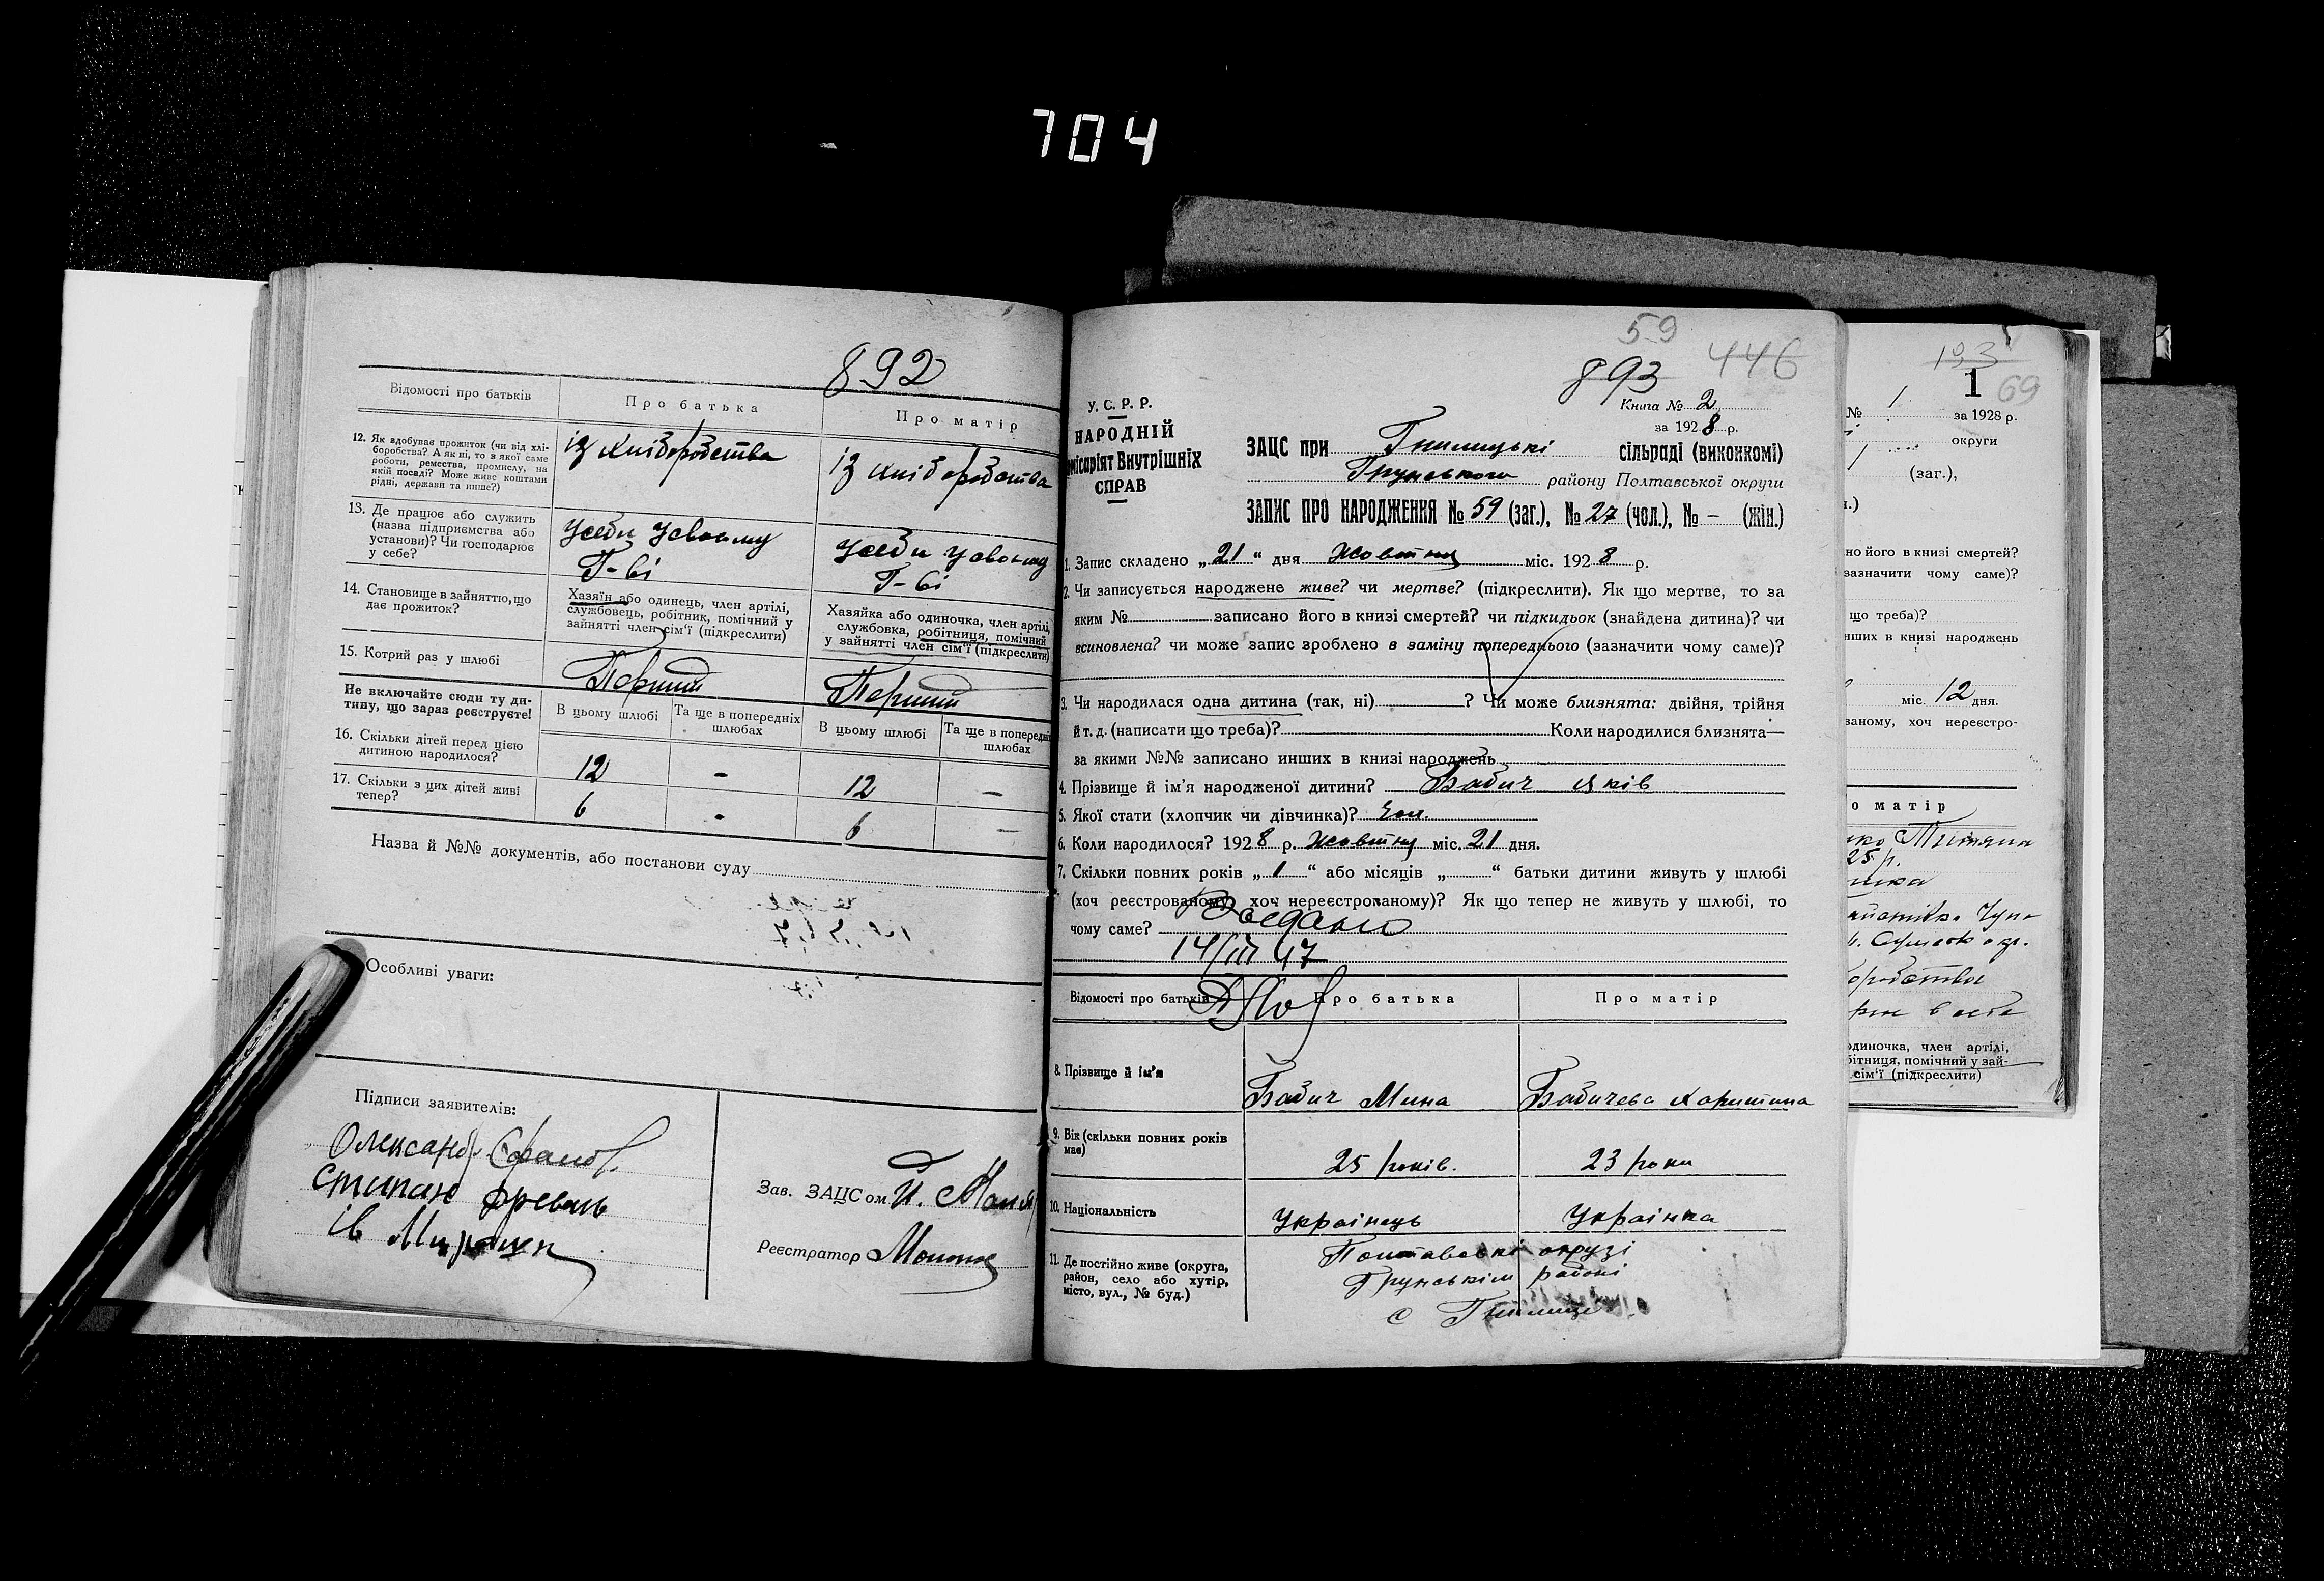 704
892
Відомості про батьків
Про батька
Про матір
12. Як здобуває прожиток (чи від хлі-
боробства? А як ні, то з якої саме
роботи, ремества, промислу, на
якій посаді? Може живе коштами
рідні, держави та инше?)
із хліборобства
із хліборобства
13. Де працює або служить
(назва підприємства або
установи)? Чи господарює
у себе?
Усеби усвоьму
Г-ві
Усеби усвоьму
Г-ві
14. Становище в зайняттю, що
дає прожиток?
Хазяїн або одинець, член артілі,
службовець, робітник, помічний у
зайнятті член сім'ї (підкреслити)
Хазяйка або одиночка, член артілі,
службовка, робітниця, помічний
у зайнятті член сім'ї (підкреслити)
15. Котрий раз у шлюбі
Перший
Перший
Не включайте сюди ту ди-
тину, що зараз реєструєте!
В цьому шлюбі
Та ще в попередніх
шлюбах
В цьому шлюбі
Та ще в попередніх
шлюбах
16. Скільки дітей перед цією
дитиною народилося?
12 - 12 -
17. Скільки з цих дітей живі
тепер?
6 - 6 -
Назва й №№ документів, або постанови суду
Особливі уваги:
Підписи заявителів:
Олександр
Степан
Ів
Зав. ЗАЦСом
Реєстратор
59
893 446
У. С. Р. Р.
НАРОДНІЙ
місаріят Внутрішніх
СПРАВ
Книга № 2
за 1928 р.
ЗАЦС при Гнилицькі сільраді (виконкомі)
Грунського району Полтавської округи
ЗАПИС ПРО НАРОДЖЕННЯ № 59 (заг.), № 27 (чол.), № - (жін.)
1. Запис складено „21“ дня Жовтня міс. 1928 р.
2. Чи записується народжене живе? чи мертве? (підкреслити). Як що мертве, то за
яким № записано його в книзі смертей? чи підкидьок (знайдена дитина)? чи
всиновлена? чи може запис зроблено в заміну попереднього (зазначити чому саме)?
3. Чи народилася одна дитина (так, ні) ? Чи може близнята: двійня, трійня
й т. д. (написати що треба)? Коли народилися близнята—
за якими №№ записано инших в книзі народжень
4. Прізвище й ім'я народженої дитини? Бабич Яків
5. Якої стати (хлопчик чи дівчинка)? Чол.
6. Коли народилося? 1928 р. Жовтня міс. 21 дня.
7. Скільки повних років „1“ або місяців „ “ батьки дитини живуть у шлюбі
(хоч реєстрованому, хоч нереєстрованому)? Як що тепер не живуть у шлюбі, то
чому саме?
14/III 47
Відомості про батьків
Про батька
Про матір
8. Прізвище й ім'я
Бабич Мина
Бабичева Харитина
9. Вік (скільки повних років
має)
25 років.
23 роки
10. Національність
Українець
Українка
11. Де постійно живе (округа,
район, село або хутір,
місто, вул., № буд.)
Полтавські окрузі
Грунськім районі
с Гнилице
193
1 69
№ 1 за 1928 р.
округи
1 (заг.),
но його в книзі смертей?
зазначити чому саме)?
що треба)?
нших в книзі народжень
міс. 12 дня.
ваному, хоч нереєстро-
о матір
Титяна
25 р.
одиночка, член артілі,
бітниця, помічний у зай-
сім'ї (підкреслити)